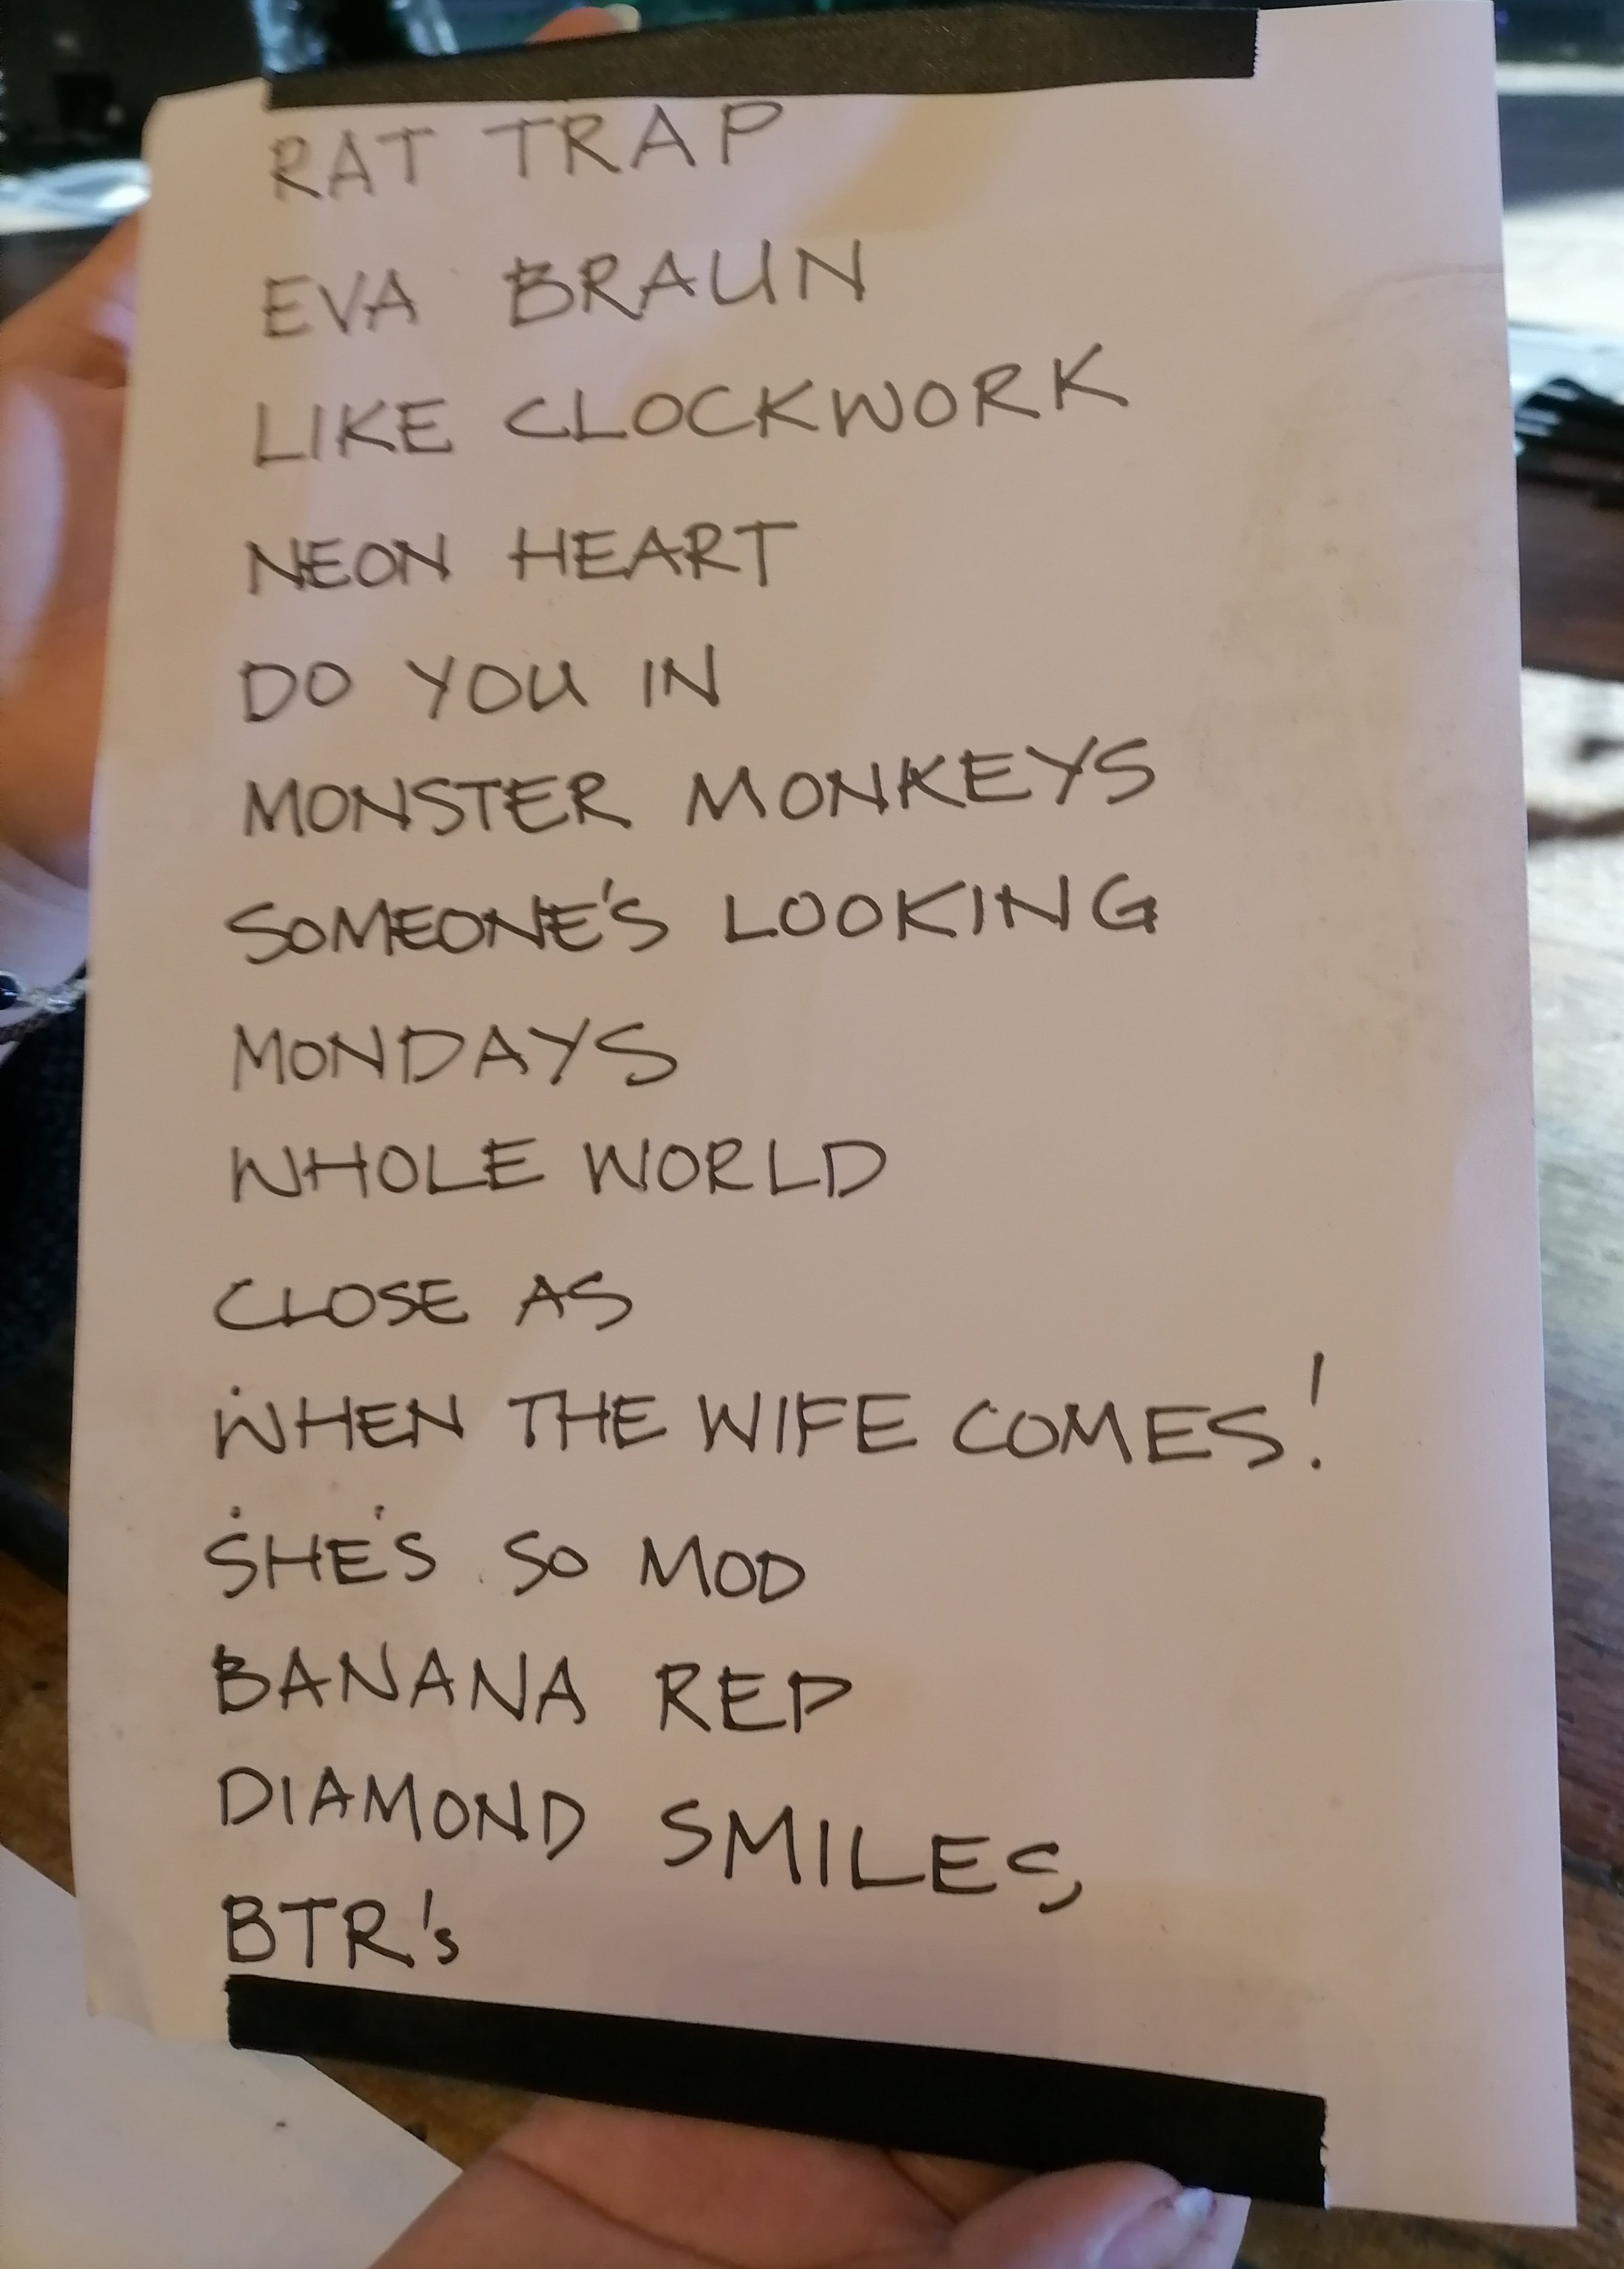 RAT TRAP
EVA BRAUN
LIKE CLOCKWORK
NEON HEART
DO YOU IN
MONSTER MONKEYS
SOMEONE'S LOOKING
MONDAYS
WHOLE WORLD
CLOSE AS
WHEN THE WIFE COMES!
SHE'S SO MOD
BANANA REP
DIAMOND SMILES,
BTR's